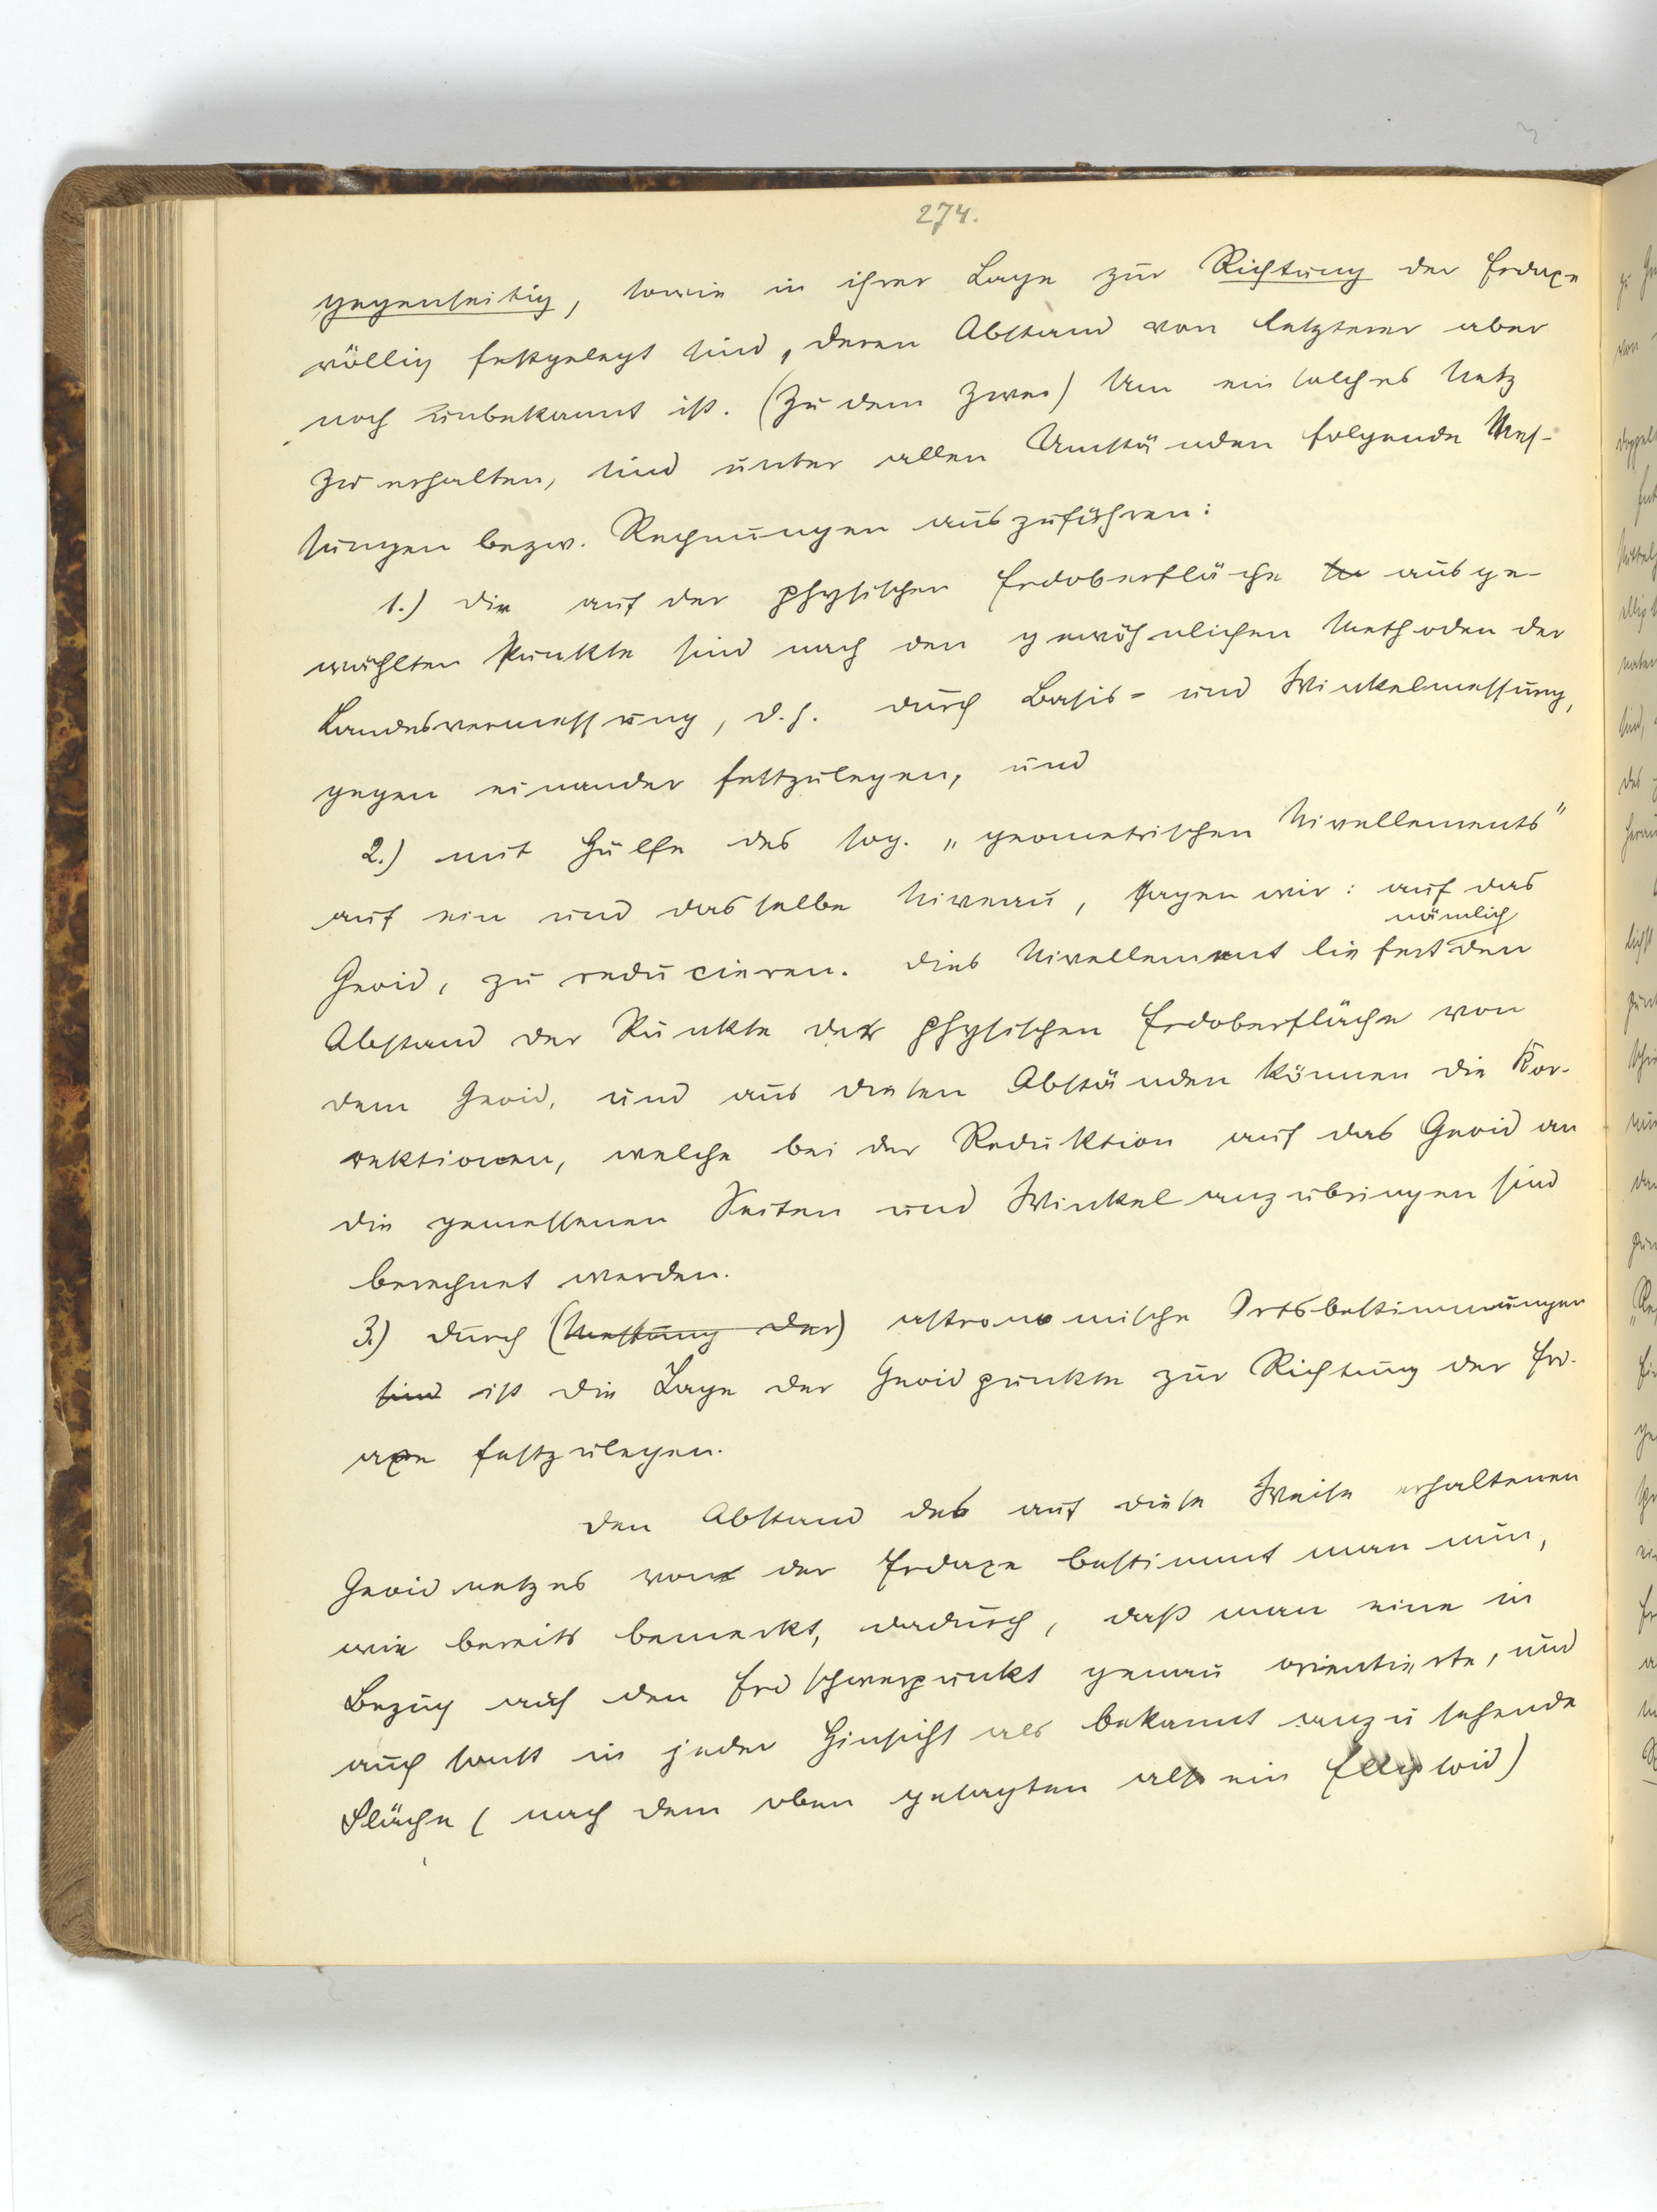 274.
gegenseitig, sowie in ihrer Lage zur Richtung der Erdaxe
völlig festgelegt sind, deren Abstand von letzterer aber
noch unbekannt ist. (Zu dem Zwec) Um ein solches Netz
zu erhalten, sind unter allen Umständen folgende Mes-
sungen bezw. Rechnungen auszuführen:
1.) die auf der physischen Erdoberfläche ausge-
wählten Punkte sind nach den gewöhnlichen Methoden der
Landesvermessung, d.h. durch Basis- und Winkelmessung,
gegen einander festzulegen, und
2.) mit Hülfe des sog. „geometrischen Nivellements"
auf ein und dasselbe Niveau, sagen wir: auf das
nämlich
Geoid, zu reducieren. Dies Nivellement liefert den
Abstand der Punkte der physischen Erdoberfläche von
dem Geoid, und aus diesen Abständen können die Kor-
rektionen, welche bei der Reduktion auf das Geoid an
die gemessenen Seiten und Winkel anzubringen sind
berechnet werden.
3.) durch (Messung der) astronomische Ortsbestimmungen
sind ist die Lage der Geoidpunkte zur Richtung der Erd-
axe festzulegen.
Den Abstand des auf diese Weise erhaltenen
Geoidnetzes von der Erdaxe bestimmt man nun,
wie bereits bemerkt, dadurch, daß man eine in
Bezug auf den Erdschwerpunkt genau orientierte, und
auch sonst in jeder Hinsicht als bekannt anzusehende
Fläche (nach dem oben gesagten also ein Ellipsoid)